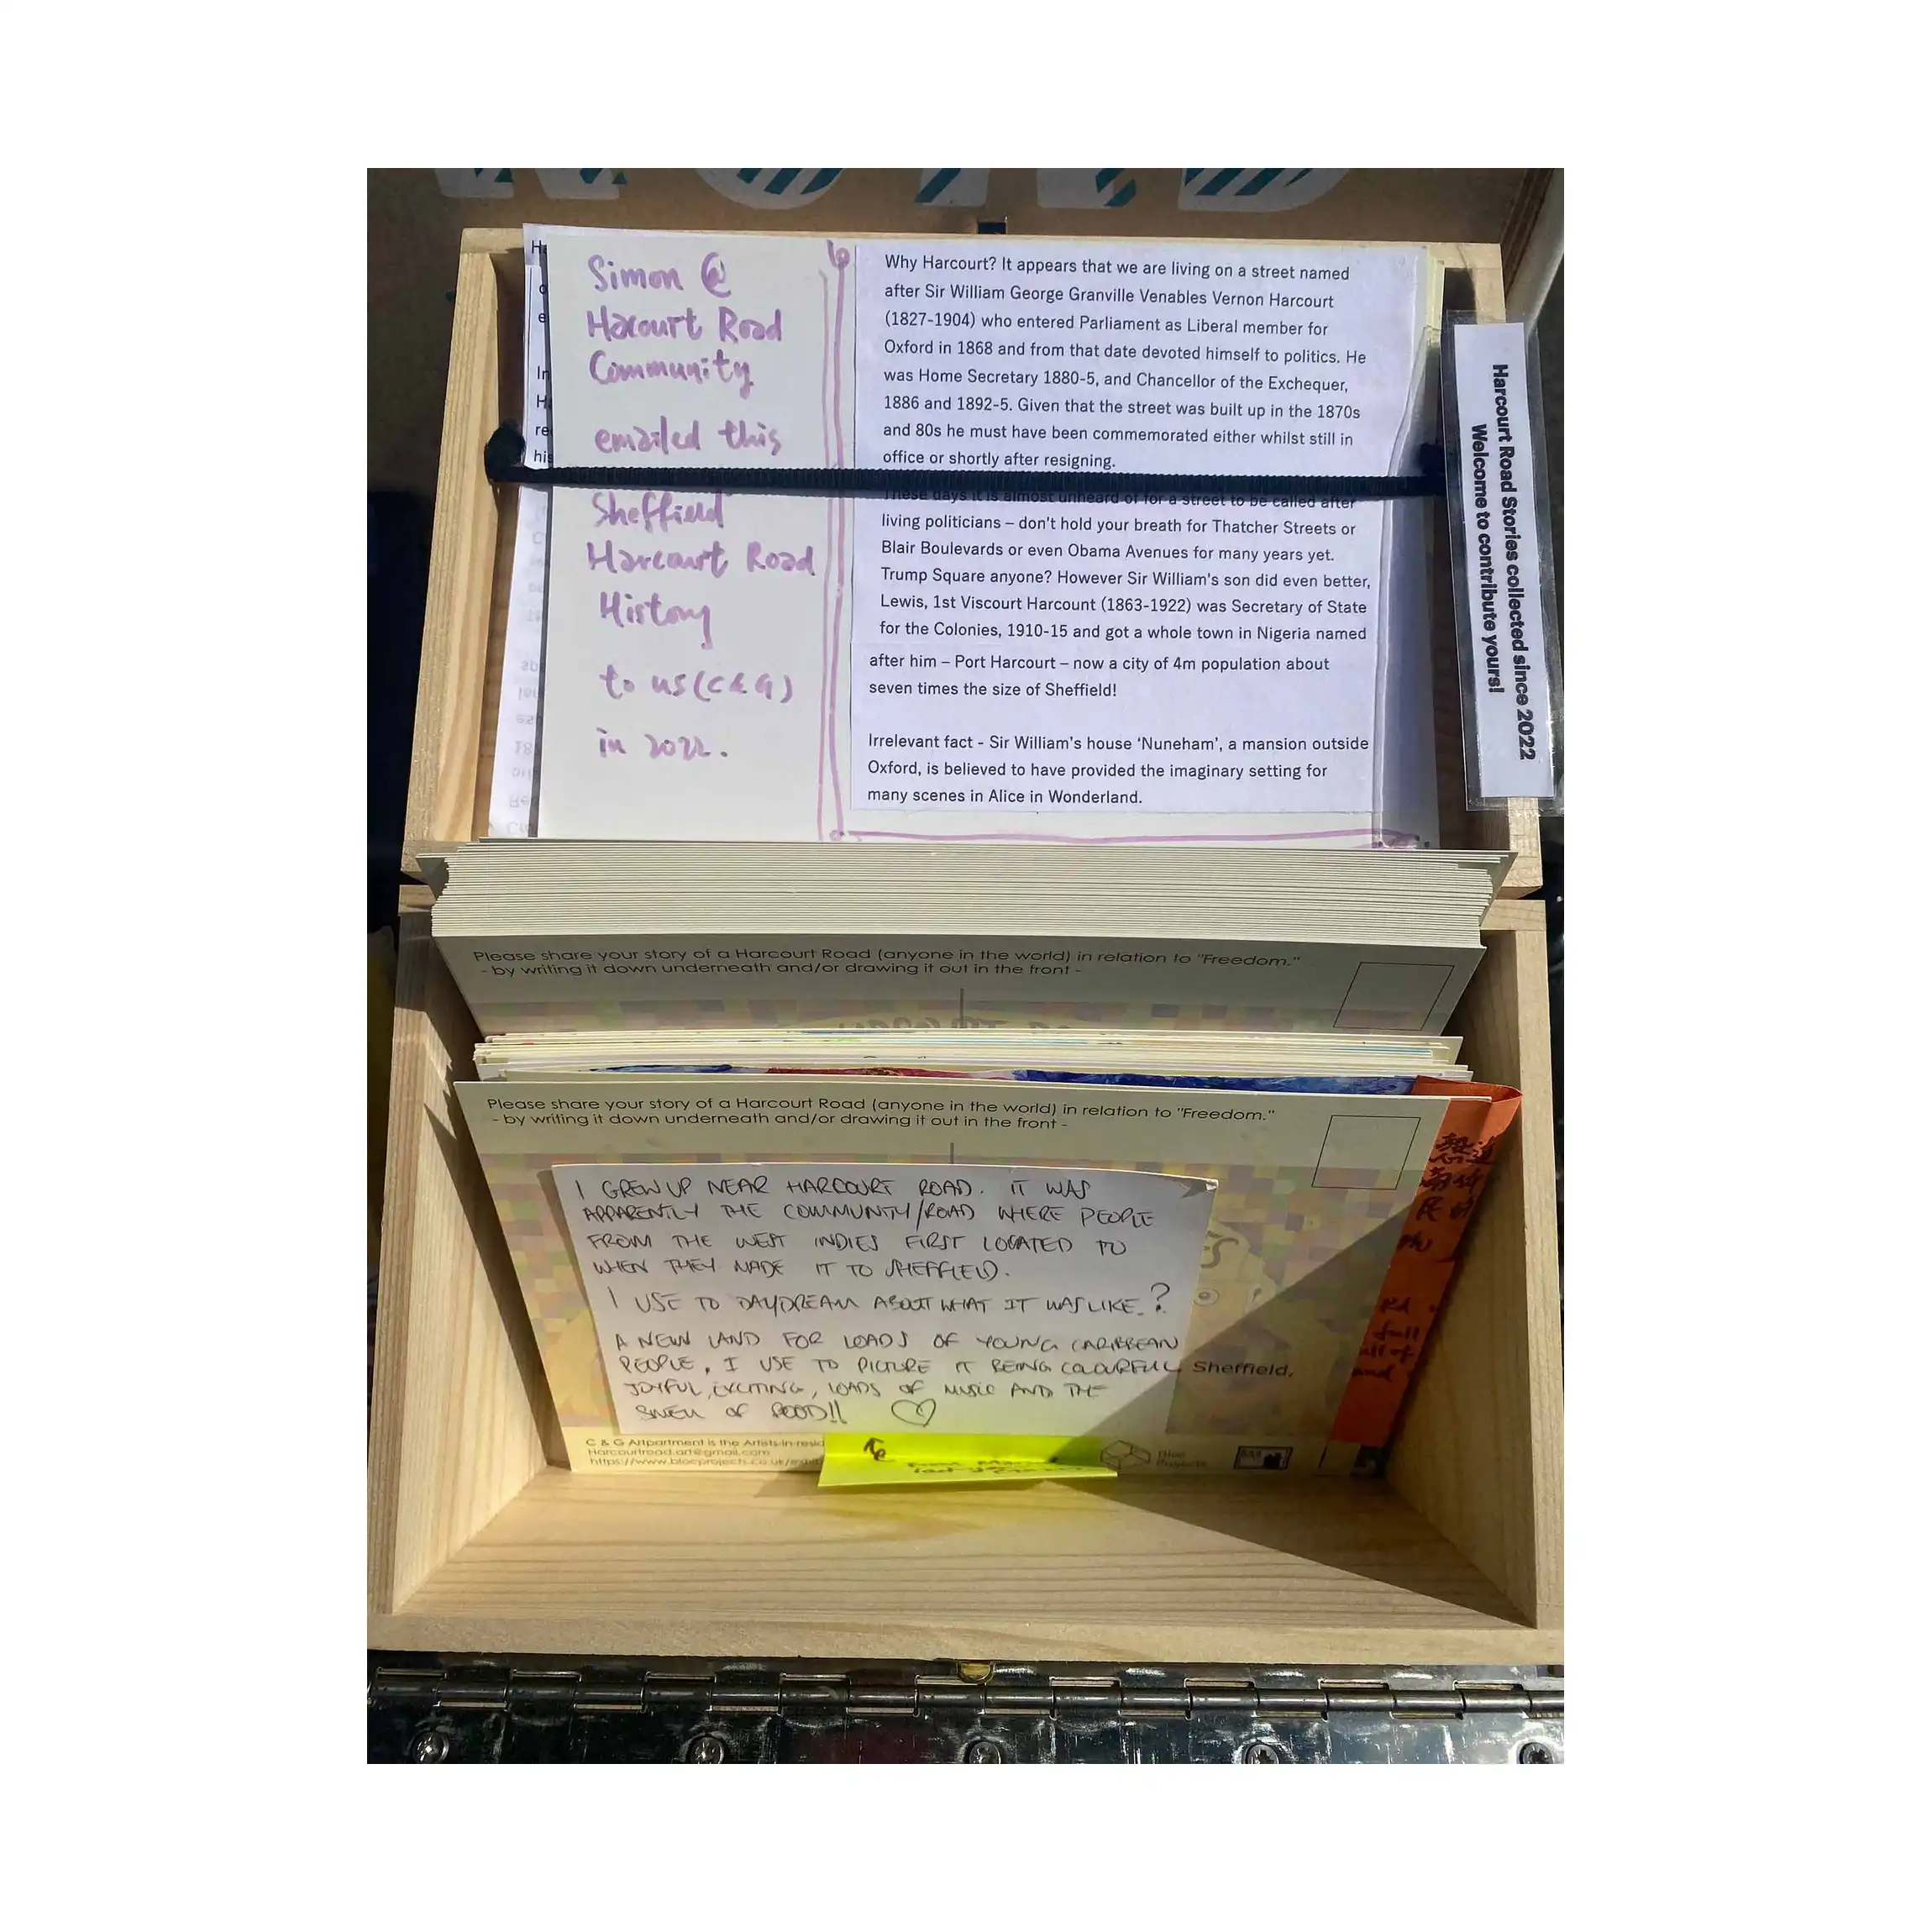 Simon @
Hacourt Road
Community
emailed this
Sheffield
Harcourt Road
History
to us (C & G)
in 2022.
Why Harcourt? It appears that we are living on a street named
after Sir William George Granville Venables Vernon Harcourt
(1827-1904) who entered Parliament as Liberal member for
Oxford in 1868 and from that date devoted himself to politics. He
was Home Secretary 1880-5, and Chancellor of the Exchequer,
1886 and 1892-5. Given that the street was built up in the 1870s
and 80s he must have been commemorated either whilst still in
office or shortly after resigning.
These days it is almost unheard of for a street to be called after
living politicians – don't hold your breath for Thatcher Streets or
Blair Boulevards or even Obama Avenues for many years yet.
Trump Square anyone? However Sir William's son did even better,
Lewis, 1st Viscourt Harcount (1863-1922) was Secretary of State
for the Colonies, 1910-15 and got a whole town in Nigeria named
after him – Port Harcourt – now a city of 4m population about
seven times the size of Sheffield!
Irrelevant fact - Sir William's house 'Nuneham', a mansion outside
Oxford, is believed to have provided the imaginary setting for
many scenes in Alice in Wonderland.
Harcourt Road Stories collected since 2022
Welcome to contribute yours!
Please share your story of a Harcourt Road (anyone in the world) in relation to "Freedom."
- by writing it down underneath and/or drawing it out in the front -
Please share your story of a Harcourt Road (anyone in the world) in relation to "Freedom."
- by writing it down underneath and/or drawing it out in the front -
I GREW UP NEAR HARCOURT ROAD. IT WAS
APPARENTLY THE COMMUNITY/ROAD WHERE PEOPLE
FROM THE WEST INDIES FIRST LOCATED TO
WHEN THEY MADE IT TO SHEFFIELD.
I USE TO DAYDREAM ABOUT WHAT IT WAS LIKE.?
A NEW LAND FOR LOADS OF YOUNG CARIBBEAN
PEOPLE. I USE TO PICTURE IT BEING COLOURFUL
JOYFUL, EXCITING, LOADS OF MUSIC AND THE
SMELL OF FOOD!!
Sheffield,
C & G Artpartment is the Artists-in-resid
Harcourtroad.art@gmail.com
https://www.blocprojects.co.uk/exhi
Bloc
Projects